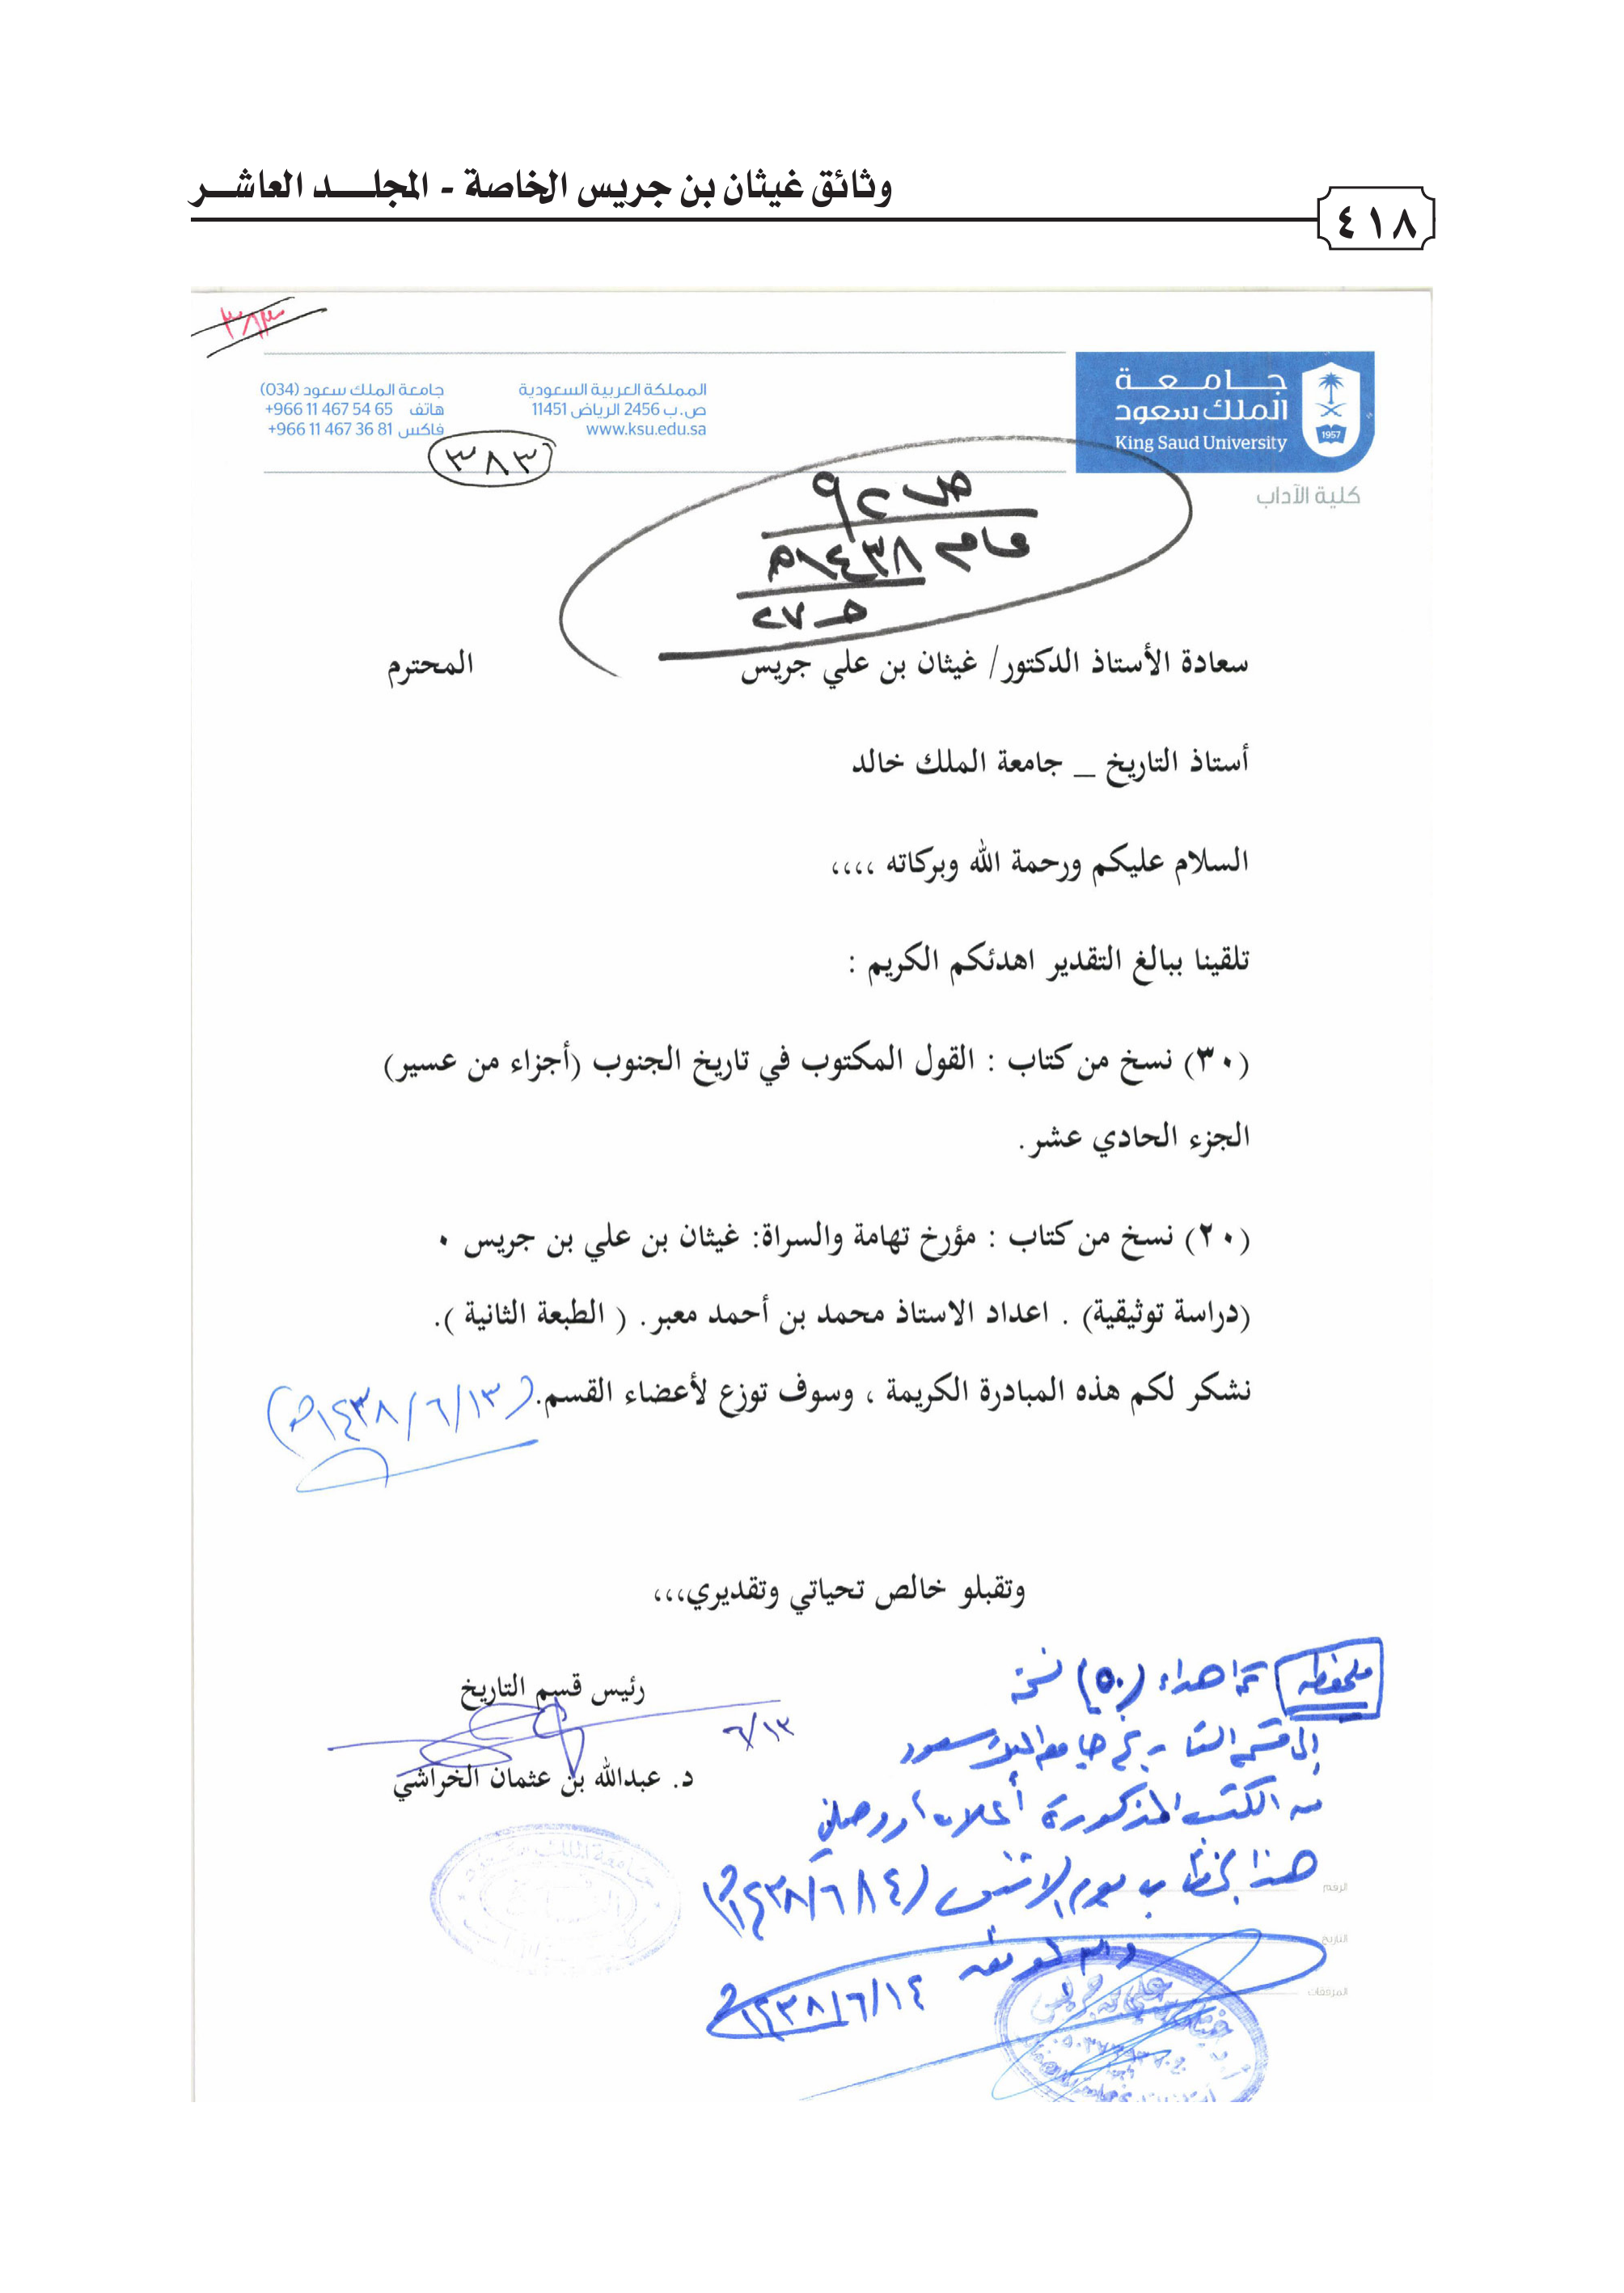 وثائق غيثان بن جريس الخاصة - المجلـــد العاشـــر
٤١٨
٣٨٣
جـــامـعـة
الملك سعود
King Saud University
1957
كلية الآداب
المملكة العربية السعودية
ص.ب 2456 الرياض 11451
www.ksu.edu.sa
جامعة الملك سعود (034)
هاتف +966 11 467 54 65
فاكس +966 11 467 36 81
(٣٨٣)
عام ١٤٣٨هـ
سعادة الأستاذ الدكتور/ غيثان بن علي جريس المحترم
أستاذ التاريخ _ جامعة الملك خالد
السلام عليكم ورحمة الله وبركاته ،،،،
تلقينا ببالغ التقدير اهدئكم الكريم :
(٣٠) نسخ من كتاب : القول المكتوب في تاريخ الجنوب (أجزاء من عسير)
الجزء الحادي عشر.
(٢٠) نسخ من كتاب : مؤرخ تهامة والسراة: غيثان بن علي بن جريس ٠
(دراسة توثيقية) . اعداد الاستاذ محمد بن أحمد معبر. ( الطبعة الثانية ).
نشكر لكم هذه المبادرة الكريمة ، وسوف توزع لأعضاء القسم.
(١٤٣٨/٦/١٣هـ)
وتقبلو خالص تحياتي وتقديري،،،
رئيس قسم التاريخ
٦/١٣
د. عبدالله بن عثمان الخراشي
ملحوظة تم اهداء (٥٠) نسخة
إلى قسم التاريخ جامعة الملك سعود
من الكتب المذكورة أعلاه، ووصلني
هذا الخطاب يوم الاثنين (١٤٣٨/٦/١٤هـ)
والله الموفق
١٤٣٨/٦/١٤هـ
الرقم
التاريخ
المرفقات